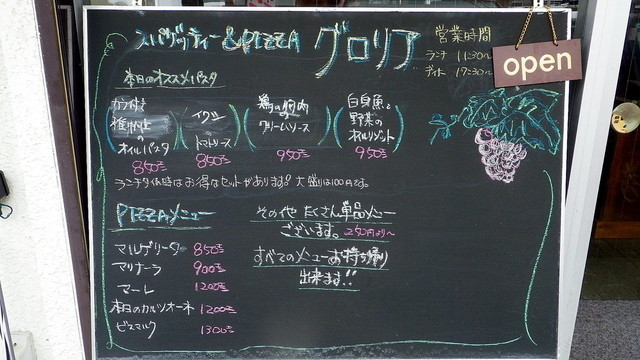 スパゲッティー&PIZZA グロリア
営業時間
ランチ 11:30〜
ディナー 17:30〜
open
本日のオススメパスタ
椎茸
の
オイルパスタ
850円
イクラ
トマトソース
850円
鶏の胸肉
の
クリームソース
950円
白身魚と
野菜の
オイルリゾット
950円
お得なセットがあります!! 大盛りは100円です。
PIZZAメニュー
マルゲリータ 850円
マリナーラ 900円
マーレ 1200円
本日のカルツオーネ 1200円
ビスマルク 1300円
その他 たくさん単品メニュー
ございます。 250円より〜
すべてのメニューお持ち帰り
出来ます!!